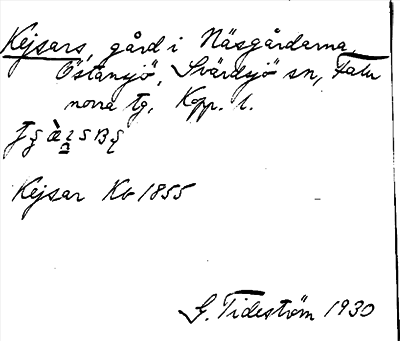 Kejsars, gård i Näsgårdarna,
Östansjö, Svärdsjö sn, Falu
norra tg, Kopp. l.
Kejsar Kb 1855
G. Tideström 1930